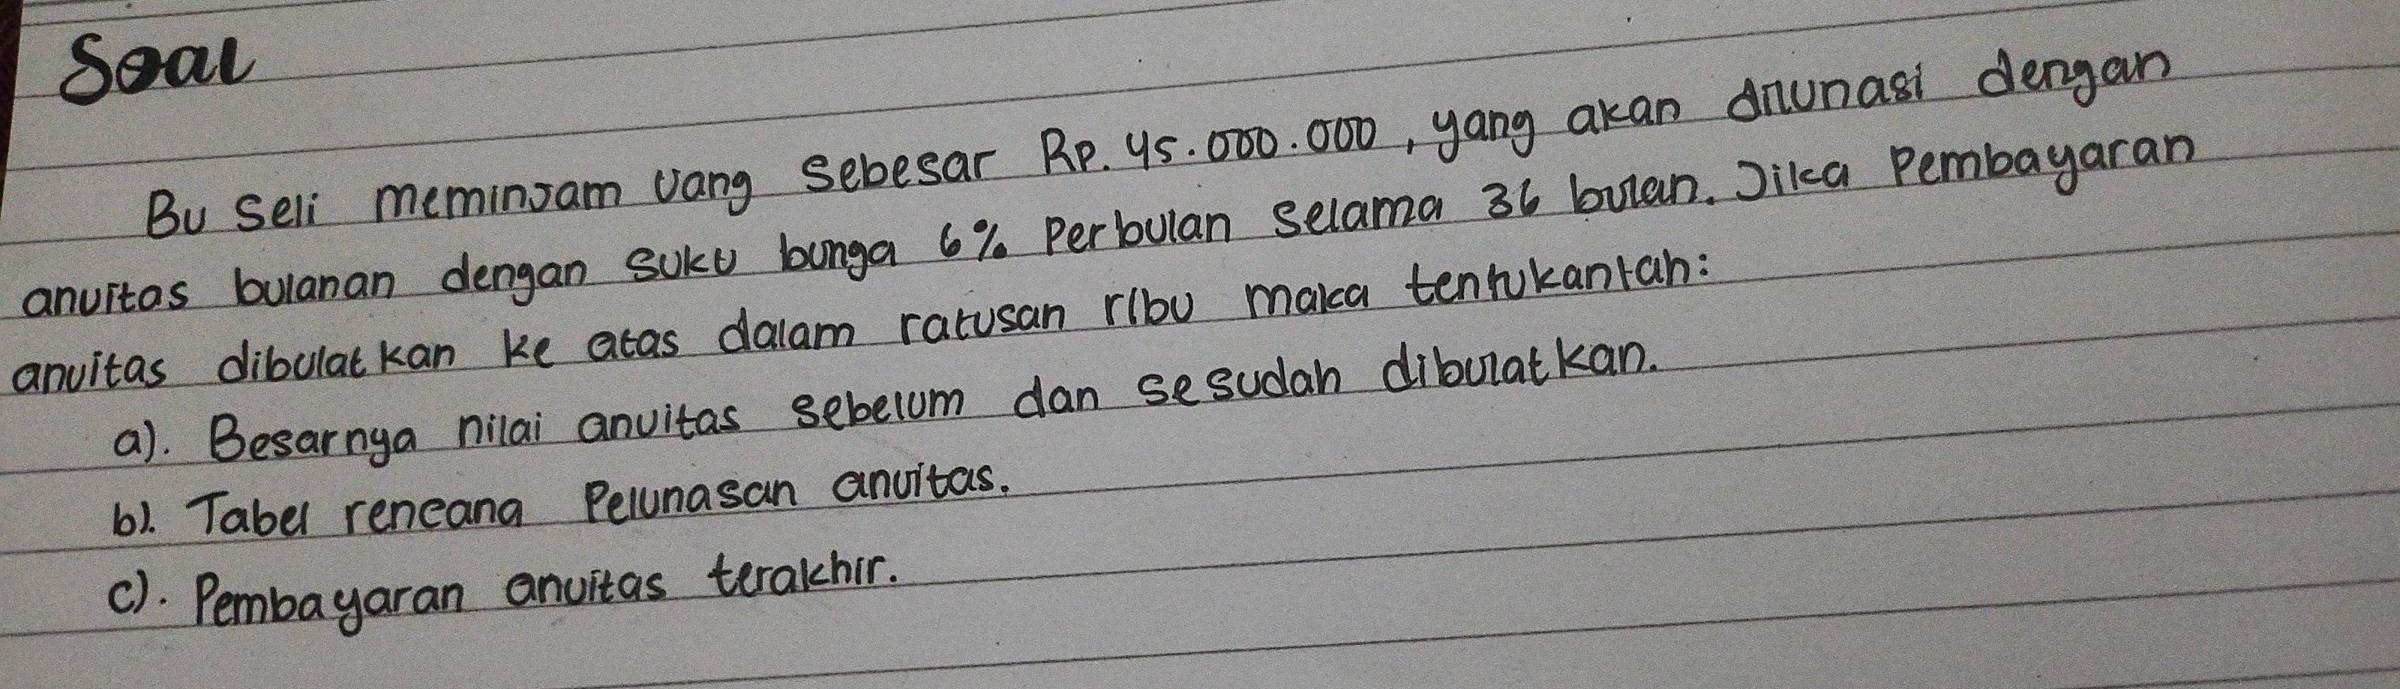 Soal
Bu Seli meminjam uang sebesar Rp. 45.000.000, yang akan dilunasi dengan
anuitas bulanan dengan suku bunga 6% Perbulan selama 36 bulan. Jika Pembayaran
anuitas dibulatkan ke atas dalam ratusan ribu maka tentukanlah:
a). Besarnya nilai anuitas sebelum dan sesudah dibulatkan.
b). Tabel rencana Pelunasan anuitas.
c). Pembayaran anuitas terakhir.